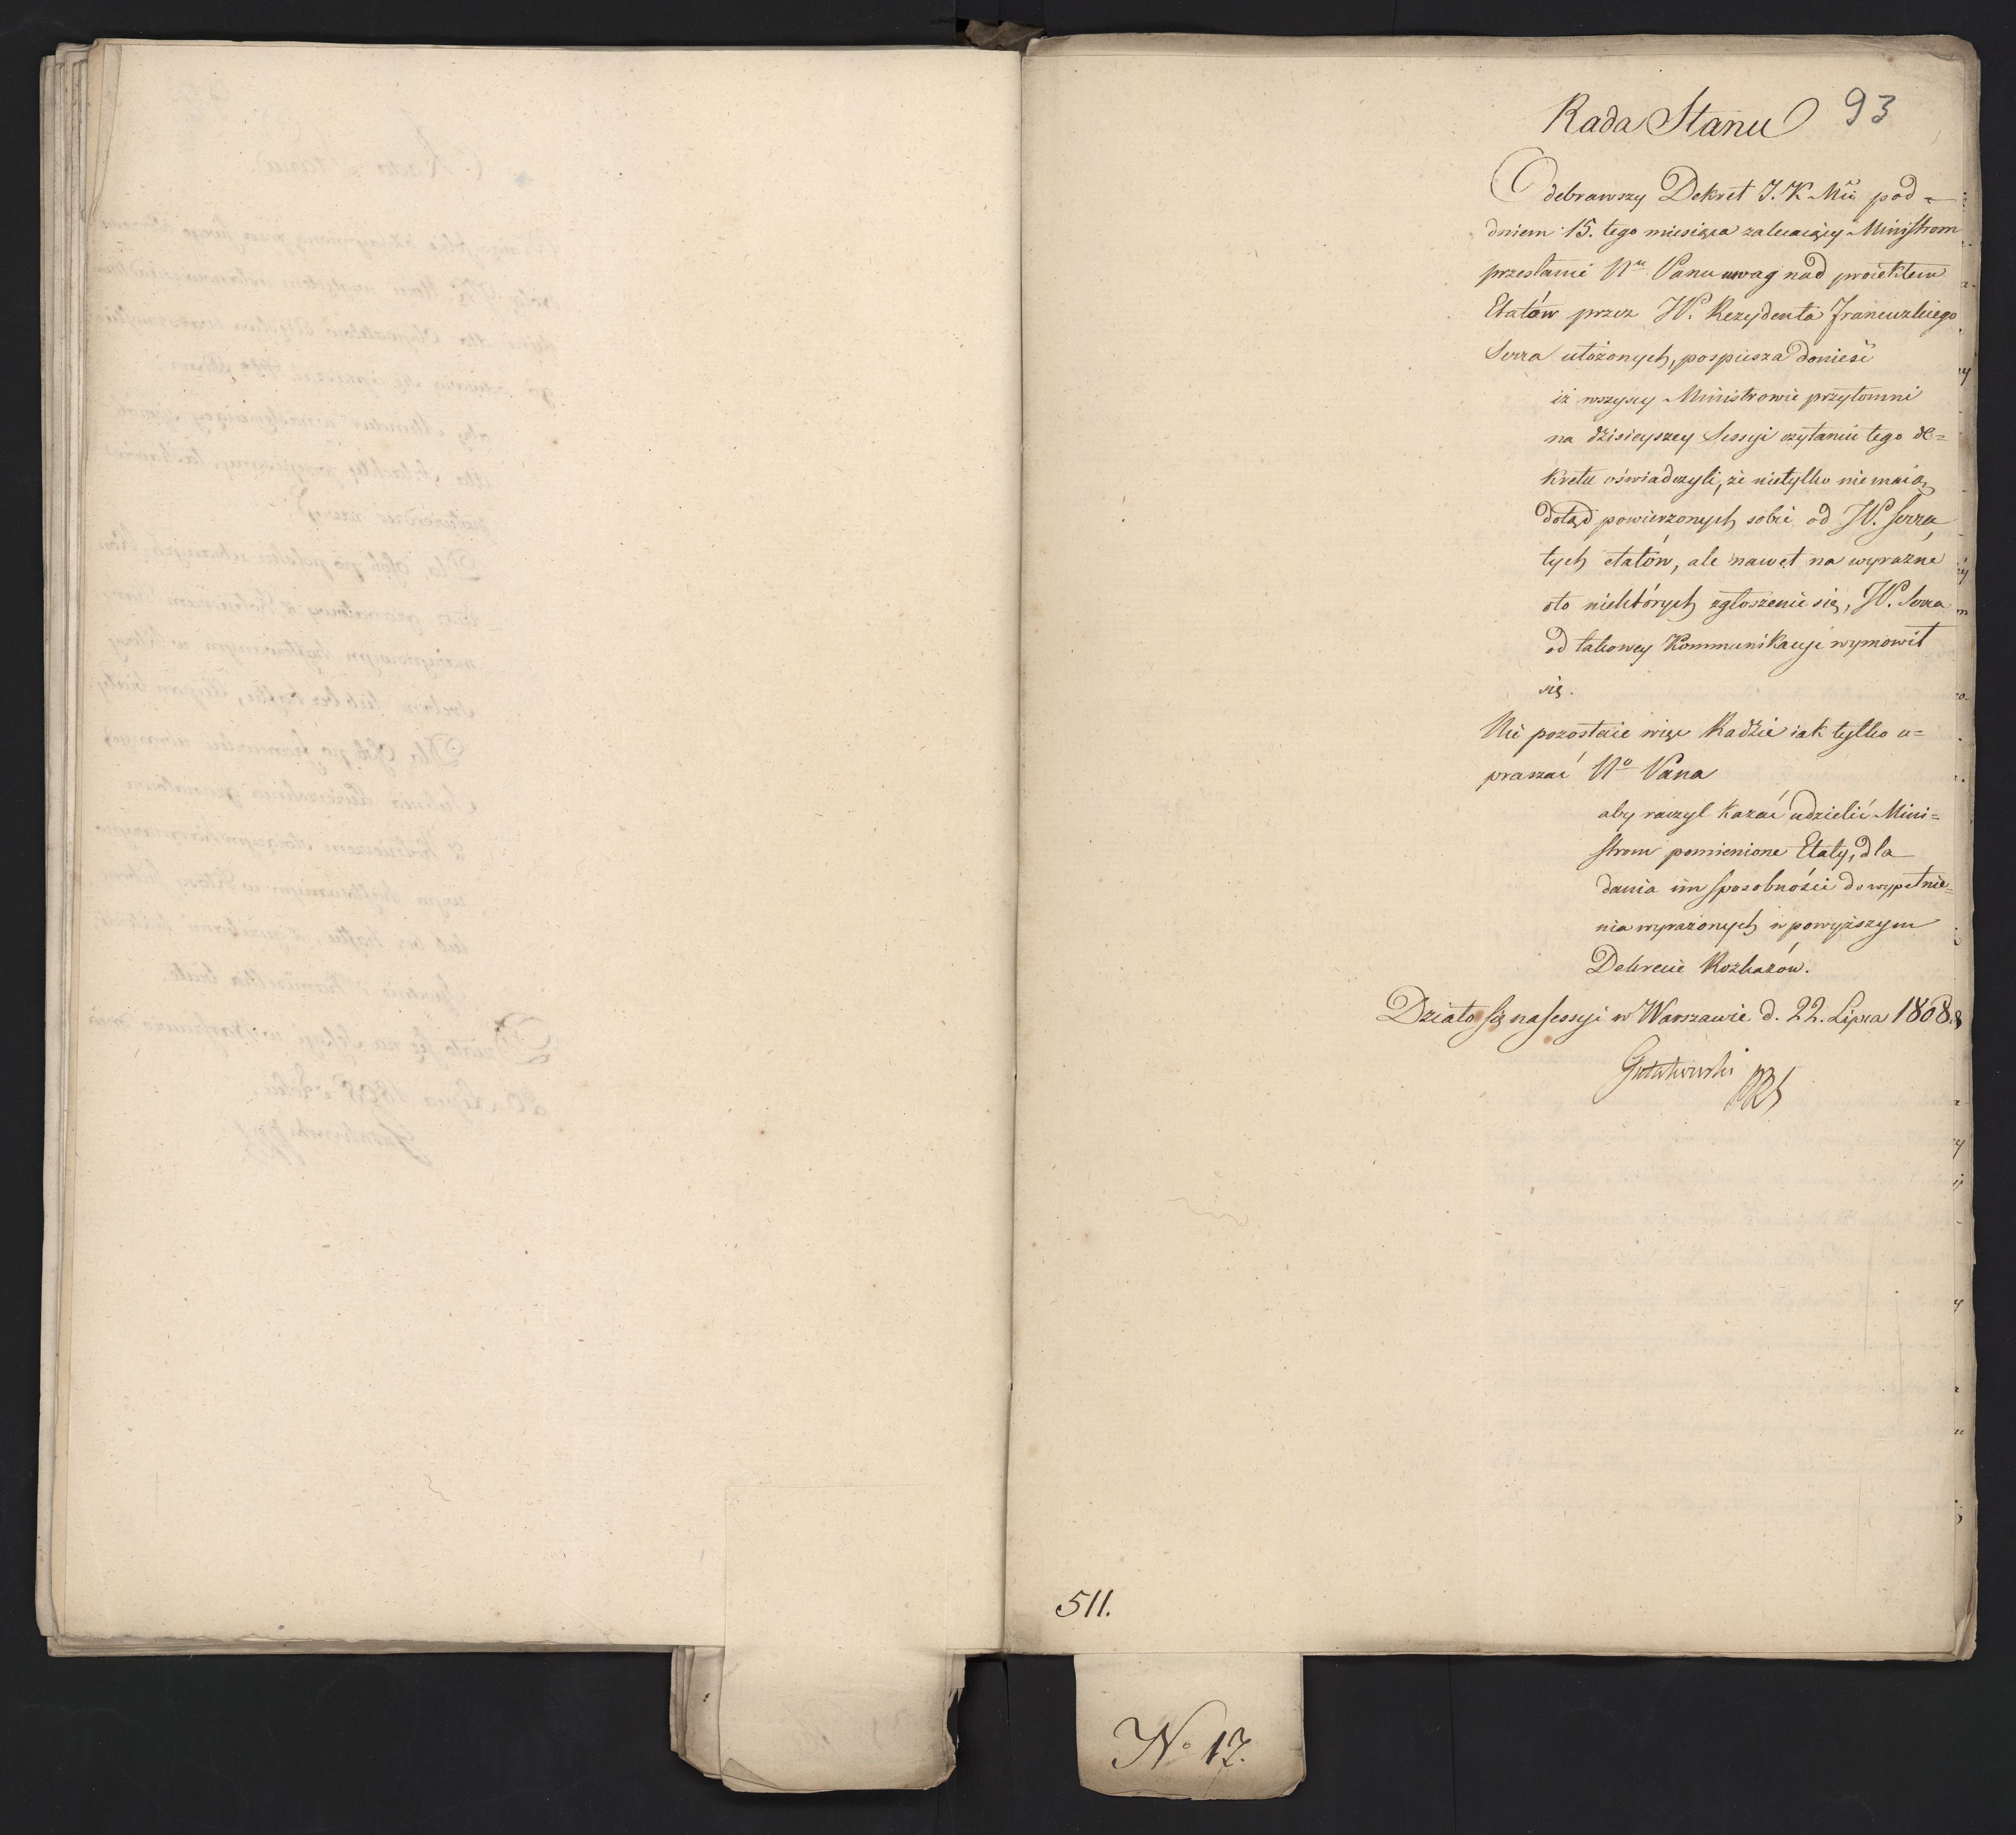 93
Rada Stanu
Odebrawszy Dekret J. K. Mci pod
dniem 15. tego miesiąca zalecaiący Ministrom
przesłanie Nu Panu uwag nad proiektem
Etatów przez JW. Rezydenta Francuzkiego
Serra ułożonych, pospiesza donieść
iż wszyscy Ministrowie przytomni
na dzisieyszey Sessyi czytaniu tego de=
kretu oświadczyli, że nietylko nie maią
dotąd powierzonych sobie od JW. Serra
tych etatów, ale nawet na wyraźne
oto niektórych zgłoszenie się, JW. Serra
od takowey Kommunikacyi wymowił
się.
Nie pozostaie więc Radzie iak tylko u=
praszać No Pana
aby raczył kazać udzielić Mini=
strom pomienione Etaty, dla
dania im sposobności do wypełnie=
nia wyrażonych w powyższym
Dekrecie Rozkazów.
Działo się na sessyi w Warszawie d. 22. Lipca 1808.
Gutakowski
511.
No 17.